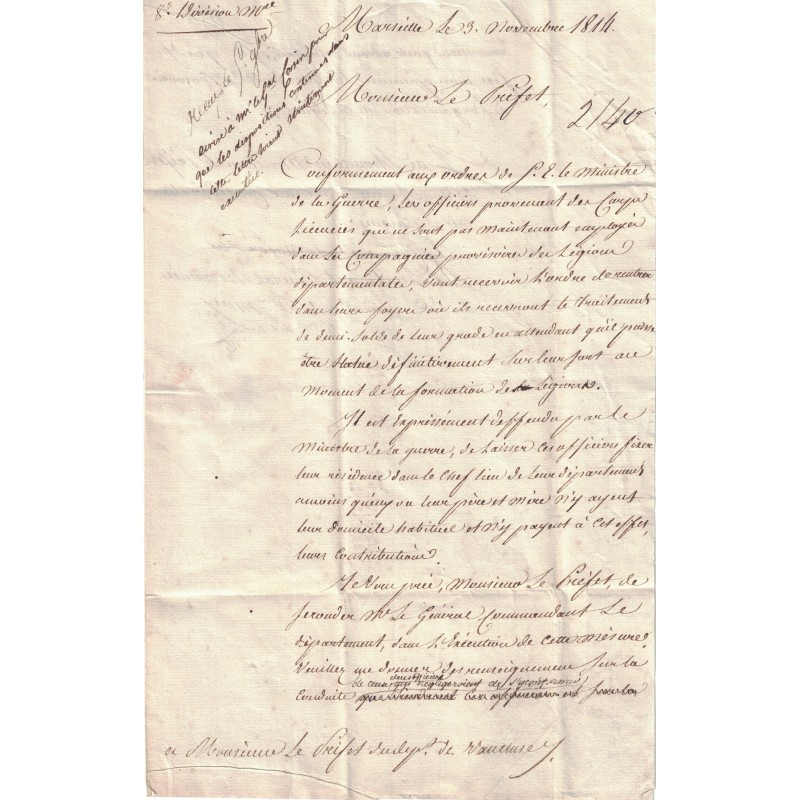 8e. Division Mre
Marseille Le 3. Novembre 1814.
écrire à Mr le Gal
que les dispositions contenues dans
cette lettre soient strictement
exécutées.
Monsieur Le Préfet,
2140
Conformément aux ordres de S. E. le Ministre
de la Guerre, Les officiers provenant des Corps
Licenciés qui ne sont pas maintenant employés
dans les Compagnies provisoires des Légions
départementales, vont recevoir l'ordre de rentrer
dans leurs foyers où ils recevront le Traitement
de demi-Solde de leur grade en attendant qu'il puisse
être Statué définitivement Sur leur sort au
Moment de la formation des Légions.
Il est Expressément deffendu par le
Ministre de la guerre, de Laisser ces officiers fixer
leur résidence dans le Chef lieu de leur département
amoins qu'eux ou leur père et mère n'y ayent
leur domicile habituel et n'y payent à cet effet,
leurs contributions.
Je Vous prie, Monsieur Le Préfet, de
seconder Mr. Le Général Commandant Le
département, dans l'Exécution de cette mesure.
Veuillez me donner des renseignemens Sur la
de ceux qui négligeroient de s'y conformer
Conduite
a Monsieur Le Préfet du dépt. de Vaucluse